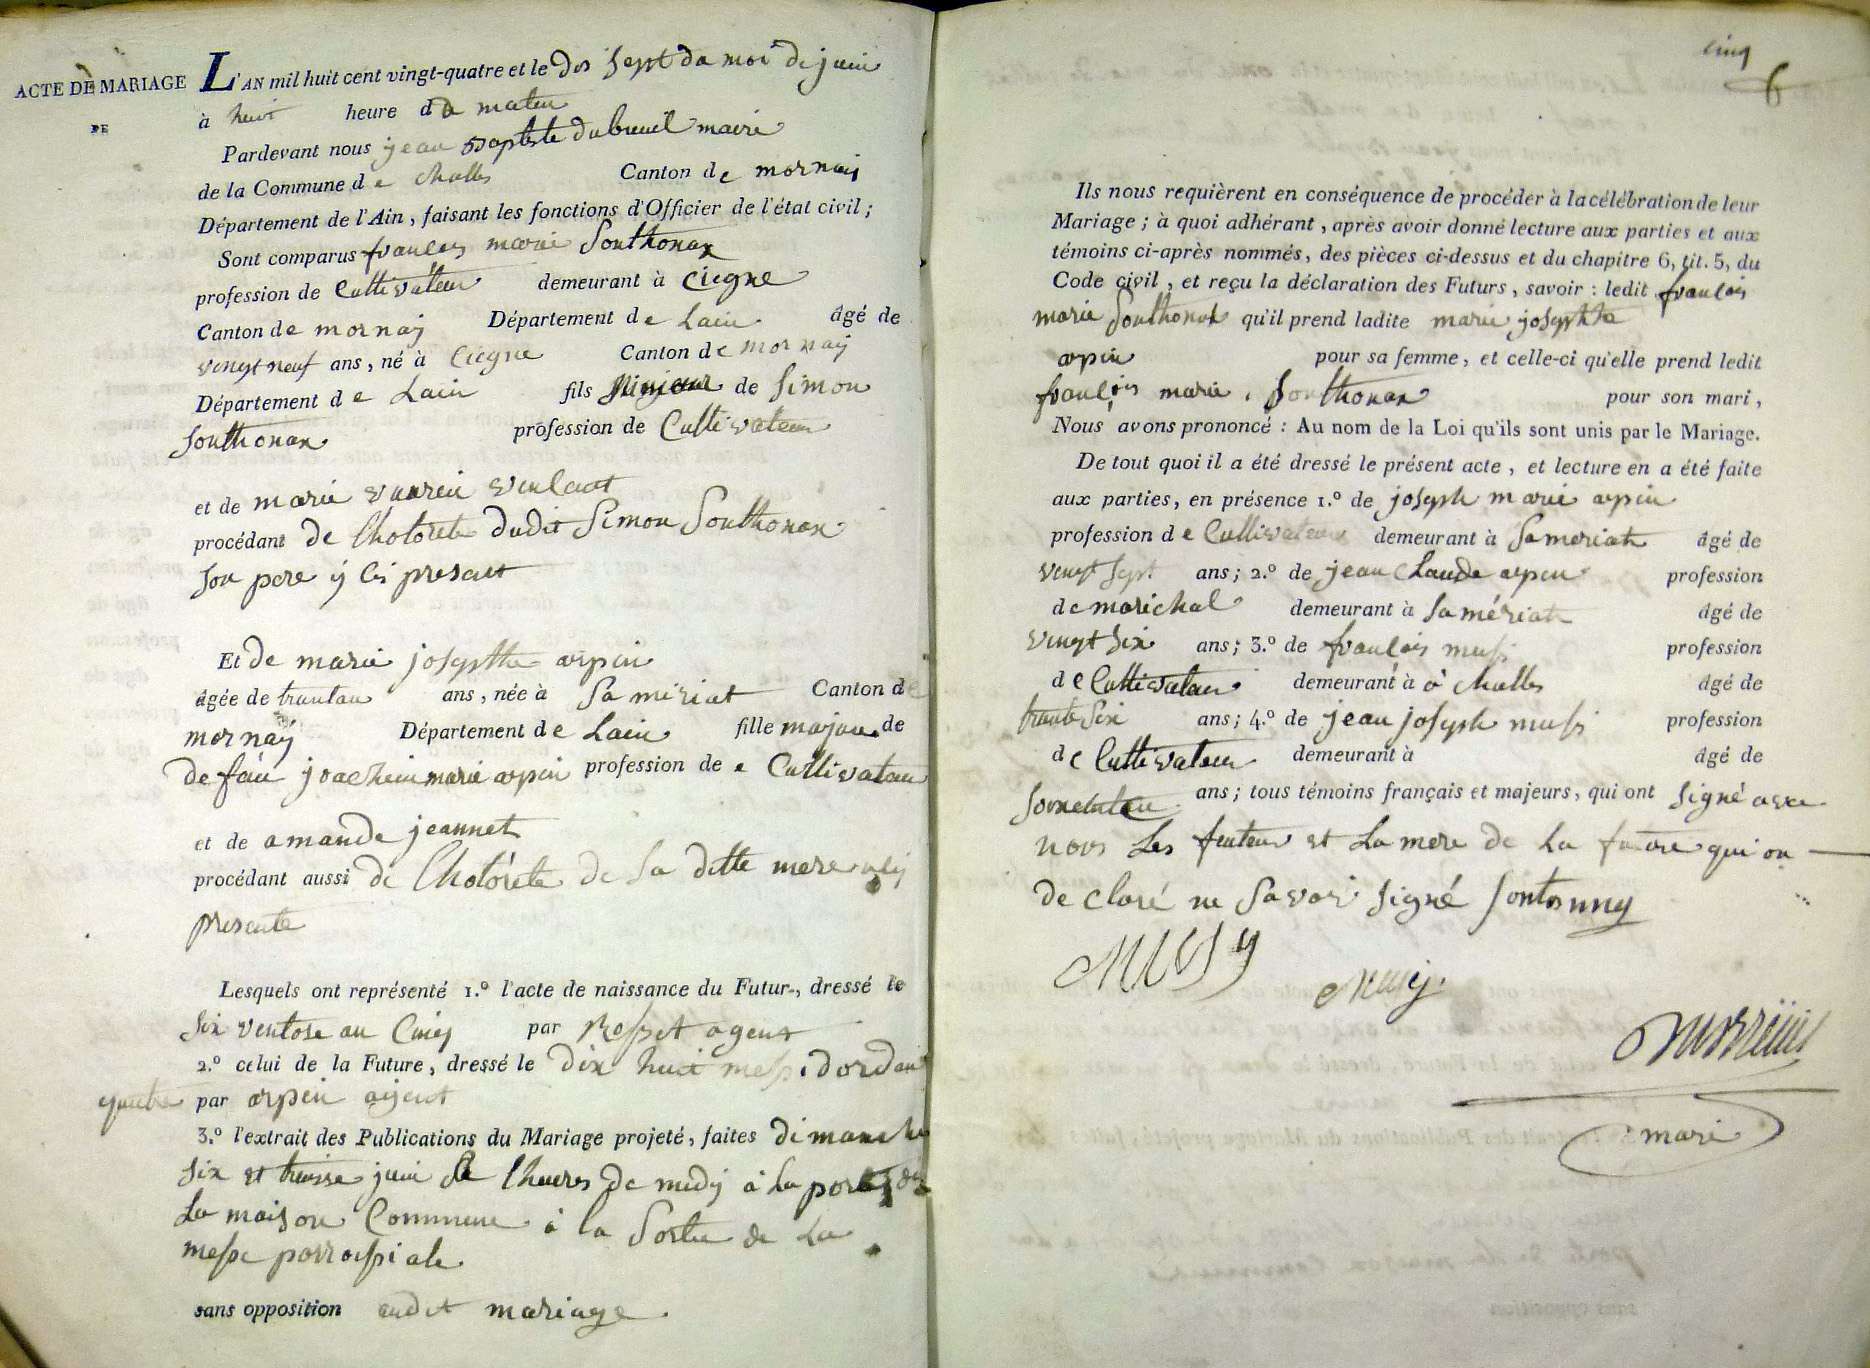 ACTE DE MARIAGE
DE
L'AN mil huit cent vingt-quatre et le dis sept du moi de juin
à huit heure du matin
Pardevant nous jean Baptiste dubreuil maire
de la Commune de challes Canton de mornay
Département de l'Ain, faisant les fonctions d'Officier de l'état civil;
Sont comparus francois marie Southonax
profession de Cultivateur demeurant à Ciegne
Canton de mornay Département de Lain âgé de
vingt neuf ans, né à Ciegne Canton de mornay
Département de Lain fils de Simon
Southonax profession de Cultivateur
et de marie
procédant de Lhotorité dudit Simon Southonax
son pere y ci present
Et de marie josephte arpin
âgée de trentau ans, née à Sa mériat Canton de
mornay Département de Lain fille majeure de
de fau joachim marie arpin profession de e Cultivateur
et de amande jeannet
procédant aussi de Lhotorité de sa ditte mere
presente
Lesquels ont représenté 1.º l'acte de naissance du Futur, dressé le
six ventose an Cinq par Rosset agent
2.º celui de la Future, dressé le dix huit messidor dan
quatre par arpin agent
3.º l'extrait des Publications du Mariage projeté, faites dimanche
six et treisse juin de Lheures de midy à la porte de
La maison Commune à la sortie de La
messe porroissiale
sans opposition audit mariage
cinq
6
Ils nous requièrent en conséquence de procéder à la célébration de leur
Mariage; à quoi adhérant, après avoir donné lecture aux parties et aux
témoins ci-après nommés, des pièces ci-dessus et du chapitre 6, tit. 5, du
Code civil, et reçu la déclaration des Futurs, savoir: ledit francois
marie Southonax qu'il prend ladite marie josephte
arpin pour sa femme, et celle-ci qu'elle prend ledit
francois marie Southonax pour son mari,
Nous avons prononcé: Au nom de la Loi qu'ils sont unis par le Mariage.
De tout quoi il a été dressé le présent acte, et lecture en a été faite
aux parties, en présence 1.º de joseph marie arpin
profession de Cultivateur demeurant à Sameriat âgé de
vingt sept ans; 2.º de jean Claude arpin profession
de marichal demeurant à Samériat âgé de
vingt six ans; 3.º de francois mussi profession
de Cultivateur demeurant à à challes âgé de
trente six ans; 4.º de jean joseph mussi profession
de Cultivateur demeurant à âgé de
ans; tous témoins français et majeurs, qui ont signé avec
nous Les futeur et La mere de La future qui on
de claré ne Savoir signé
MUSSY
mussy
maire